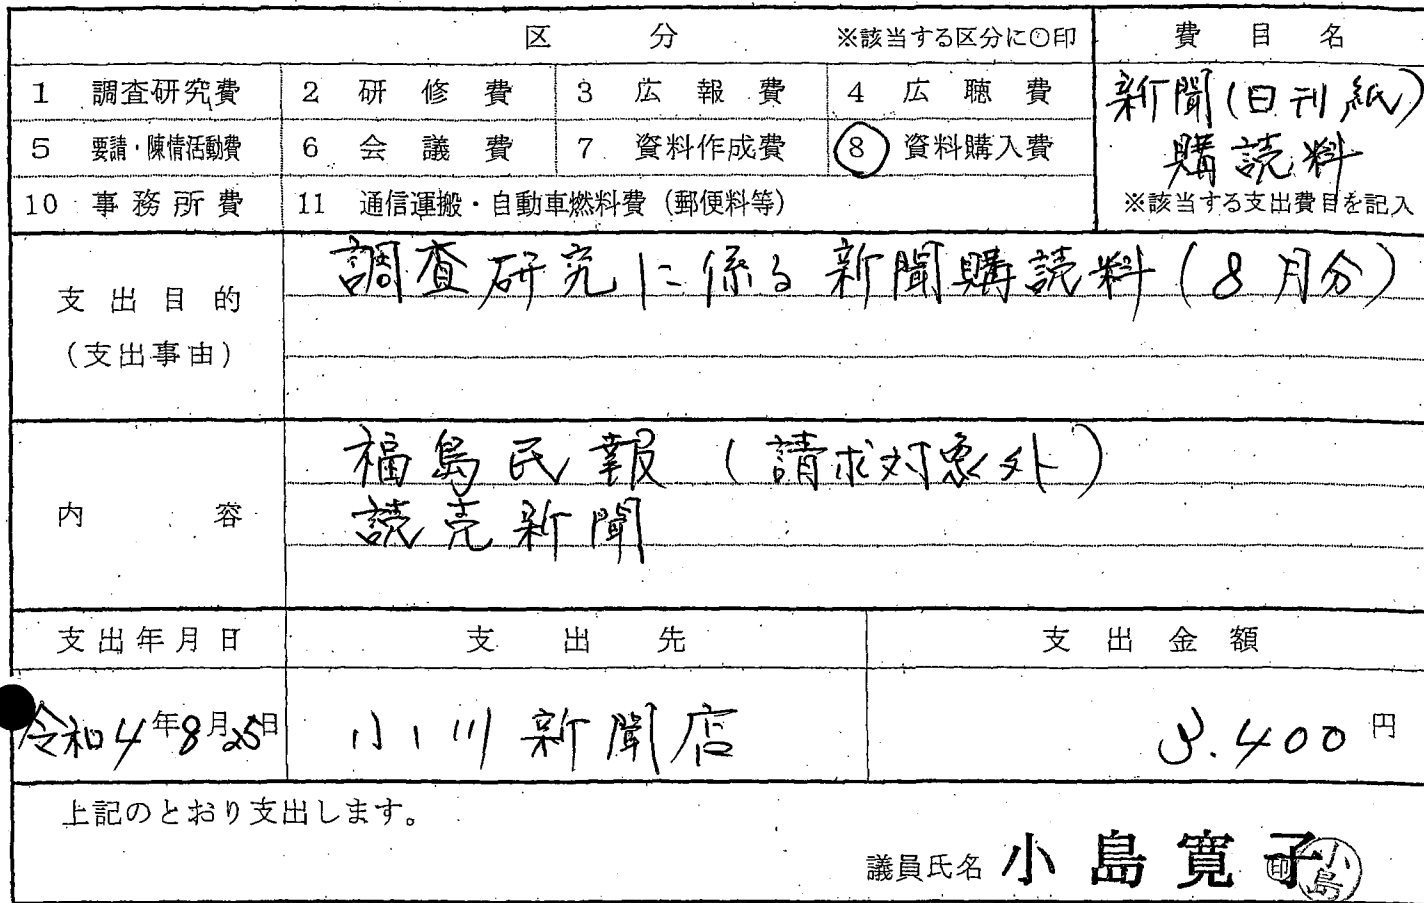 区 分 ※該当する区分に○印 費 目 名
1 調査研究費 2 研 修 費 3 広 報 費 4 広 聴 費 新聞(日刊紙)
5 要請・陳情活動費 6 会 議 費 7 資料作成費 8 資料購入費 購読料
10 事務所費 11 通信運搬・自動車燃料費(郵便料等) ※該当する支出費目を記入
支出目的 調査研究に係る新聞購読料(8月分)
(支出事由)
福島民報(請求対象外)
内 容 読売新聞
支出年月日 支 出 先 支 出 金 額
令和4年8月25日 小川新聞店 3.400円
上記のとおり支出します。
議員氏名 小島寛子 印 小島